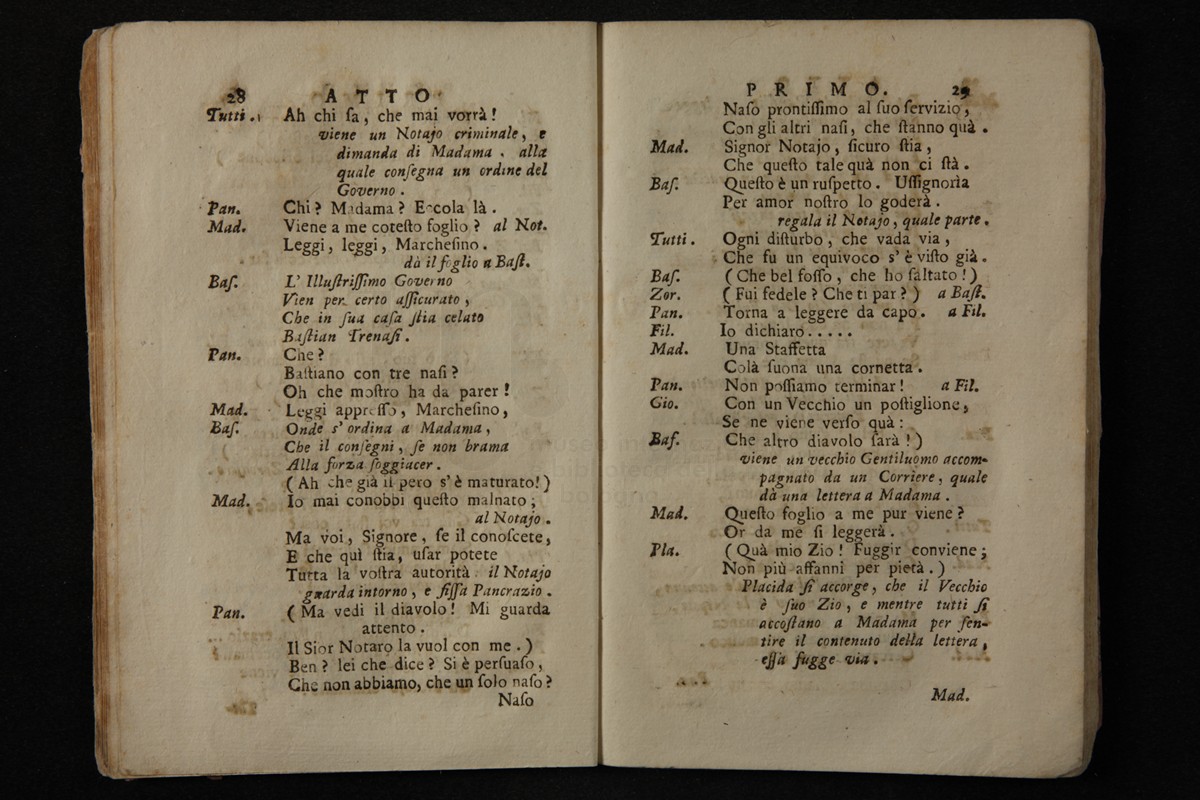 28 ATTO
Tutti. Ah chi ſa, che mai vorrà!
viene un Notajo criminale, e
dimanda di Madama, alla
quale conſegna un ordine del
Governo.
Pan. Chi? Madama? Eccola là.
Mad. Viene a me coteſto foglio? al Not.
Leggi, leggi, Marcheſino.
dà il foglio a Baſt.
Baſ. L' Illuſtriſſimo Governo
Vien per certo aſſicurato,
Che in ſua caſa ſtia celato
Baſtian Trenaſi.
Pan. Che?
Baſtiano con tre naſi?
Oh che moſtro ha da parer!
Mad. Leggi appreſſo, Marcheſino,
Baſ. Onde s' ordina a Madama,
Che il conſegni, ſe non brama
Alla forza ſoggiacer.
(Ah che già il pero s' è maturato!)
Mad. Io mai conobbi queſto malnato;
al Notajo.
Ma voi, Signore, ſe il conoſcete,
E che quì ſtia, uſar potete
Tutta la voſtra autorità. il Notajo
guarda intorno, e fiſſa Pancrazio.
Pan. (Ma vedi il diavolo! Mi guarda
attento.
Il Sior Notaro la vuol con me.)
Ben? lei che dice? Si è perſuaſo,
Che non abbiamo, che un ſolo naſo?
Naſo
PRIMO. 29
Naſo prontiſſimo al ſuo ſervizio,
Con gli altri naſi, che ſtanno quà.
Mad. Signor Notajo, ſicuro ſtia,
Che queſto tale quà non ci ſtà.
Baſ. Queſto è un ruſpetto. Uſſignorìa
Per amor noſtro lo goderà.
regala il Notajo, quale parte.
Tutti. Ogni diſturbo, che vada via,
Che fu un equivoco s' è viſto già.
Baſ. (Che bel foſſo, che ho ſaltato!)
Zor. (Fui fedele? Che ti par?) a Baſt.
Pan. Torna a leggere da capo. a Fil.
Fil. Io dichiaro.....
Mad. Una Staffetta
Colà ſuona una cornetta.
Pan. Non poſſiamo terminar! a Fil.
Gio. Con un Vecchio un poſtiglione,
Se ne viene verſo quà:
Baſ. Che altro diavolo ſarà!)
viene un vecchio Gentiluomo accom-
pagnato da un Corriere, quale
dà una lettera a Madama.
Mad. Queſto foglio a me pur viene?
Or da me ſi leggerà.
Pla. (Quà mio Zio! Fuggir conviene;
Non più affanni per pietà.)
Placida ſi accorge, che il Vecchio
è ſuo Zio, e mentre tutti ſi
accoſtano a Madama per ſen-
tire il contenuto della lettera,
eſſa fugge via.
Mad.